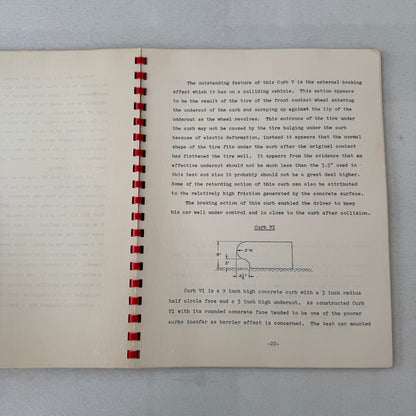 The outstanding feature of this Curb V is the external braking
effect which it has on a colliding vehicle. This action appears
to be the result of the tire of the front contact wheel entering
the undercut of the curb and scraping up against the lip of the
undercut as the wheel revolves. This entrance of the tire under
the curb may not be caused by the tire bulging under the curb
because of elastic deformation, instead it appears that the normal
shape of the tire fits under the curb after the original contact
has flattened the tire well. It appears from the evidence that an
effective undercut should not be much less than the 3.5" used in
this test and also it probably should not be a great deal higher.
Some of the retarding action of this curb can also be attributed
to the relatively high friction generated by the concrete surface.
The braking action of this curb enabled the driver to keep
his car well under control and in close to the curb after collision.
Curb VI
3"R
9"
3"
Curb VI is a 9 inch high concrete curb with a 3 inch radius
half circle face and a 3 inch high undercut. As constructed Curb
VI with its rounded concrete face tended to be one of the poorer
curbs insofar as barrier effect is concerned. The test car mounted
-22-